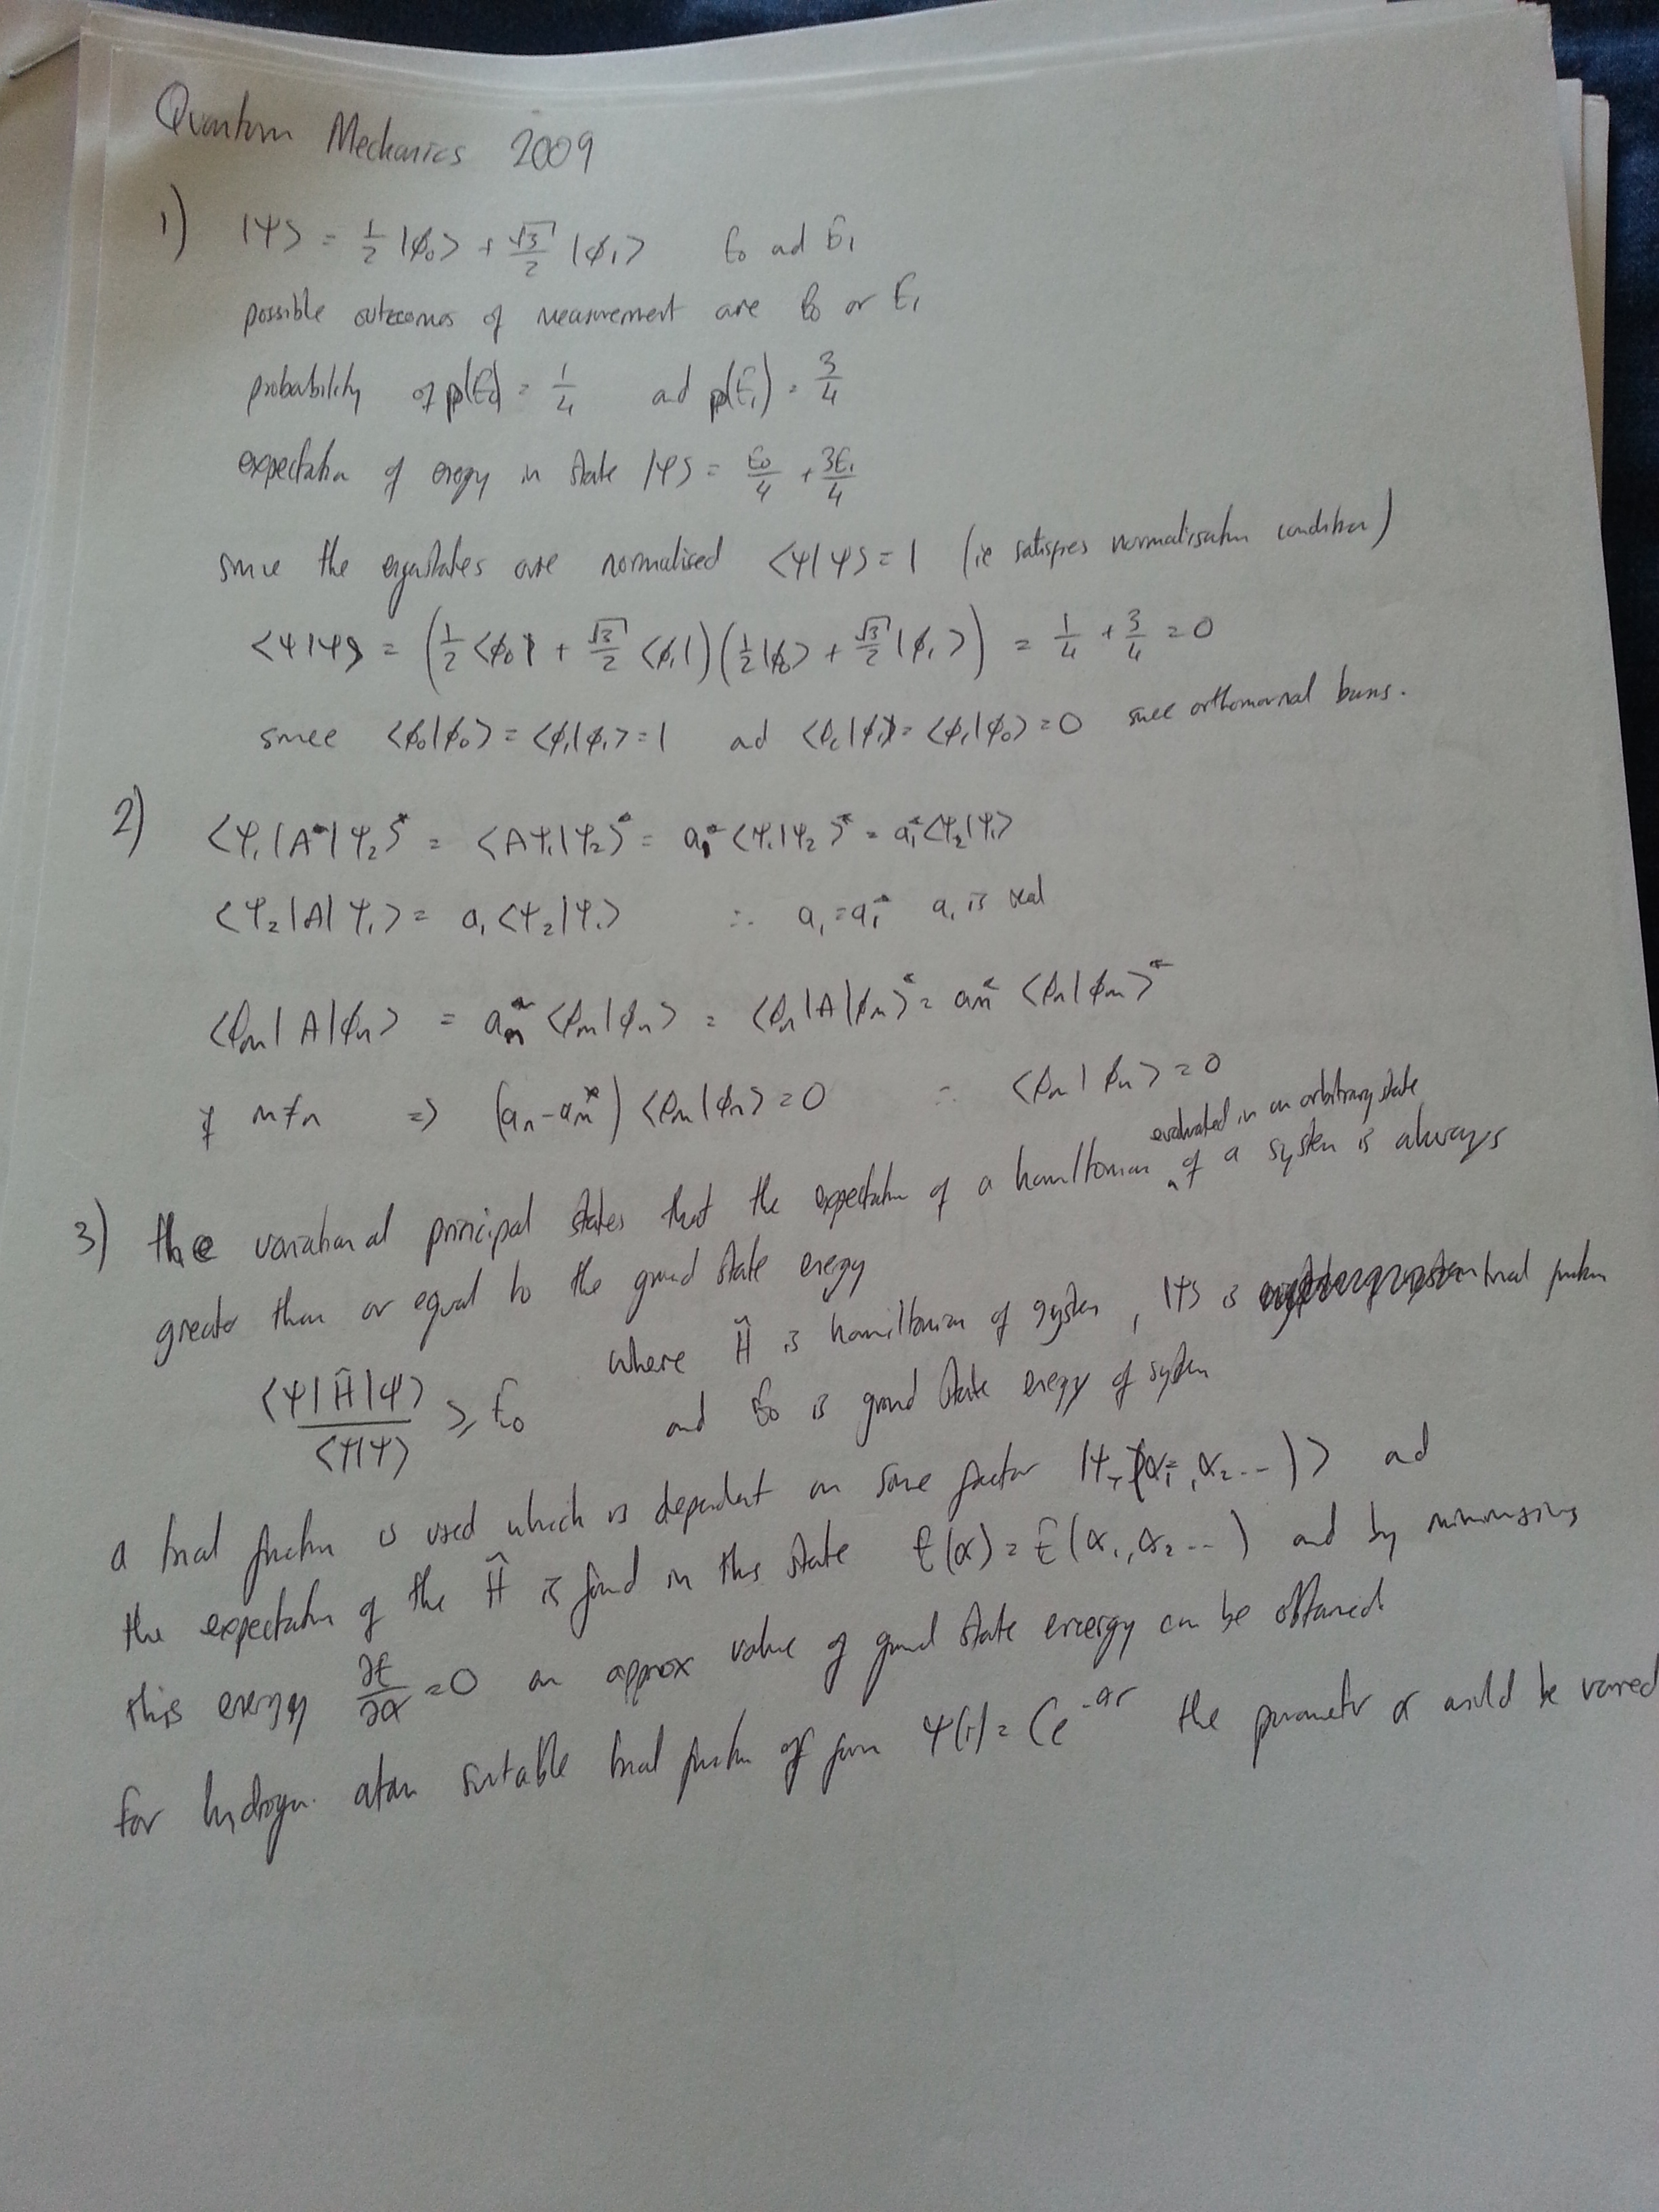 Quantum Mechanics 2009
1) |Ψ> = 1/2 |ϕ₀> + √3/2 |ϕ₁> E₀ ad E₁
possible outcomes of measurement are E₀ or E₁
probability of p(E₀) = 1/4 and p(E₁) = 3/4
expectation of energy in state |Ψ> = E₀/4 + 3E₁/4
since the eigenstates are normalised <Ψ|Ψ> = 1 (ie satisfies normalisation condition)
<Ψ|Ψ> = (1/2 <ϕ₀| + √3/2 <ϕ₁|)(1/2 |ϕ₀> + √3/2 |ϕ₁>) = 1/4 + 3/4 = 0
since <ϕ₀|ϕ₀> = <ϕ₁|ϕ₁> = 1 ad <ϕ₀|ϕ₁> = <ϕ₁|ϕ₀> = 0 since orthonormal basis.
2) <Ψ₁|A|Ψ₂>* = <AΨ₁|Ψ₂>* = a₁* <Ψ₁|Ψ₂>* = a₁* <Ψ₂|Ψ₁>
<Ψ₂|A|Ψ₁> = a₁ <Ψ₂|Ψ₁> ∴ a₁ = a₁* a₁ is real
<ϕₘ|A|ϕₙ> = aₘ* <ϕₘ|ϕₙ> = <ϕₙ|A|ϕₘ>* = aₘ* <ϕₙ|ϕₘ>*
if m≠n => (aₙ - aₘ*) <ϕₘ|ϕₙ> = 0 ∴ <ϕₘ|ϕₙ> = 0
evaluated in an arbitrary state
3) the variational principal states that the expectation of a hamiltonian of a system is always
greater than or equal to the ground state energy
<Ψ|Ĥ|Ψ>/<Ψ|Ψ> ≥ E₀ where Ĥ is hamiltonian of system, |Ψ> is trial function
and E₀ is ground state energy of system
a trial function is used which is dependent on some factor |Ψ_T(α₁, α₂ ...)> ad
the expectation of the Ĥ is found in this state E(α) = E(α₁, α₂ ...) and by minimising
this energy ∂E/∂α = 0 an approx value of ground state energy can be obtained.
For hydrogen atom suitable trial function of form Ψ(r) = Ce^-αr the parameter α would be varied